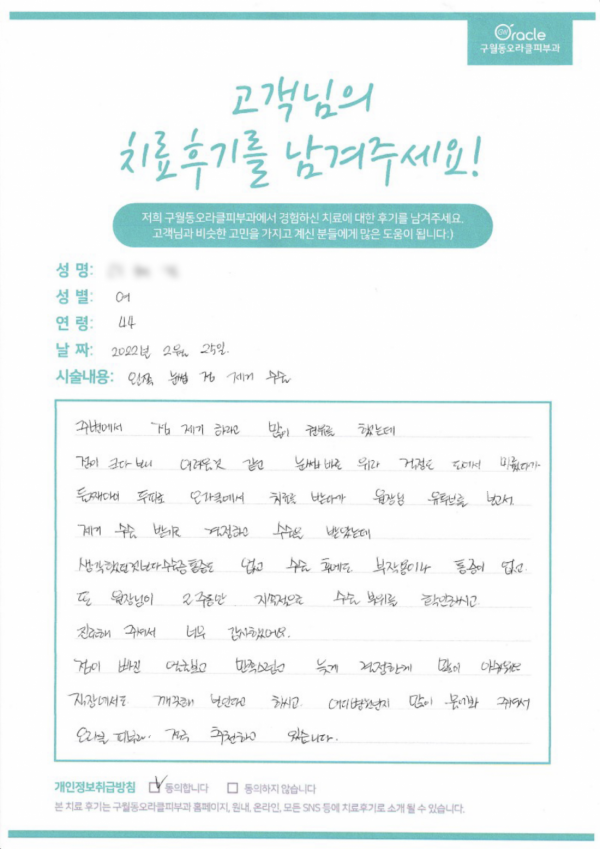 Oracle
구월동오라클피부과
고객님의
치료후기를 남겨주세요!
저희 구월동오라클피부과에서 경험하신 치료에 대한 후기를 남겨주세요.
고객님과 비슷한 고민을 가지고 계신 분들에게 많은 도움이 됩니다:)
성 명:
성 별: 여
연 령: 44
날 짜: 2022년 2월 25일.
시술내용: 왼쪽 눈썹 점 제거 수술
주변에서 점 제거 하라고 많이 권유를 했는데
점이 크다 보니 어려울것 같고 눈썹 바로 위라 걱정도 되어서 미뤘다가
두피로 오라클에서 치료를 받다가 원장님 유튜브를 보고서
제거 수술 받기로 결정하고 수술을 받았는데
생각했던것보다 수술중 통증도 없고 수술 후에도 부작용이나 통증이 없고.
또 원장님이 2주동안 지속적으로 수술 부위를 확인해주시고
진료해 주셔서 너무 감사했어요.
점이 빠진 만족스럽고 늦게 결정한게 많이
직장에서도 깨끗해 졌다고 하시고 어디병원인지 많이 물어봐 주셔서
오라클 피부과. 적극 추천하고 있습니다.
개인정보취급방침 ☑ 동의합니다 ☐ 동의하지 않습니다
본 치료 후기는 구월동오라클피부과 홈페이지, 원내, 온라인, 모든 SNS 등에 치료후기로 소개 될 수 있습니다.